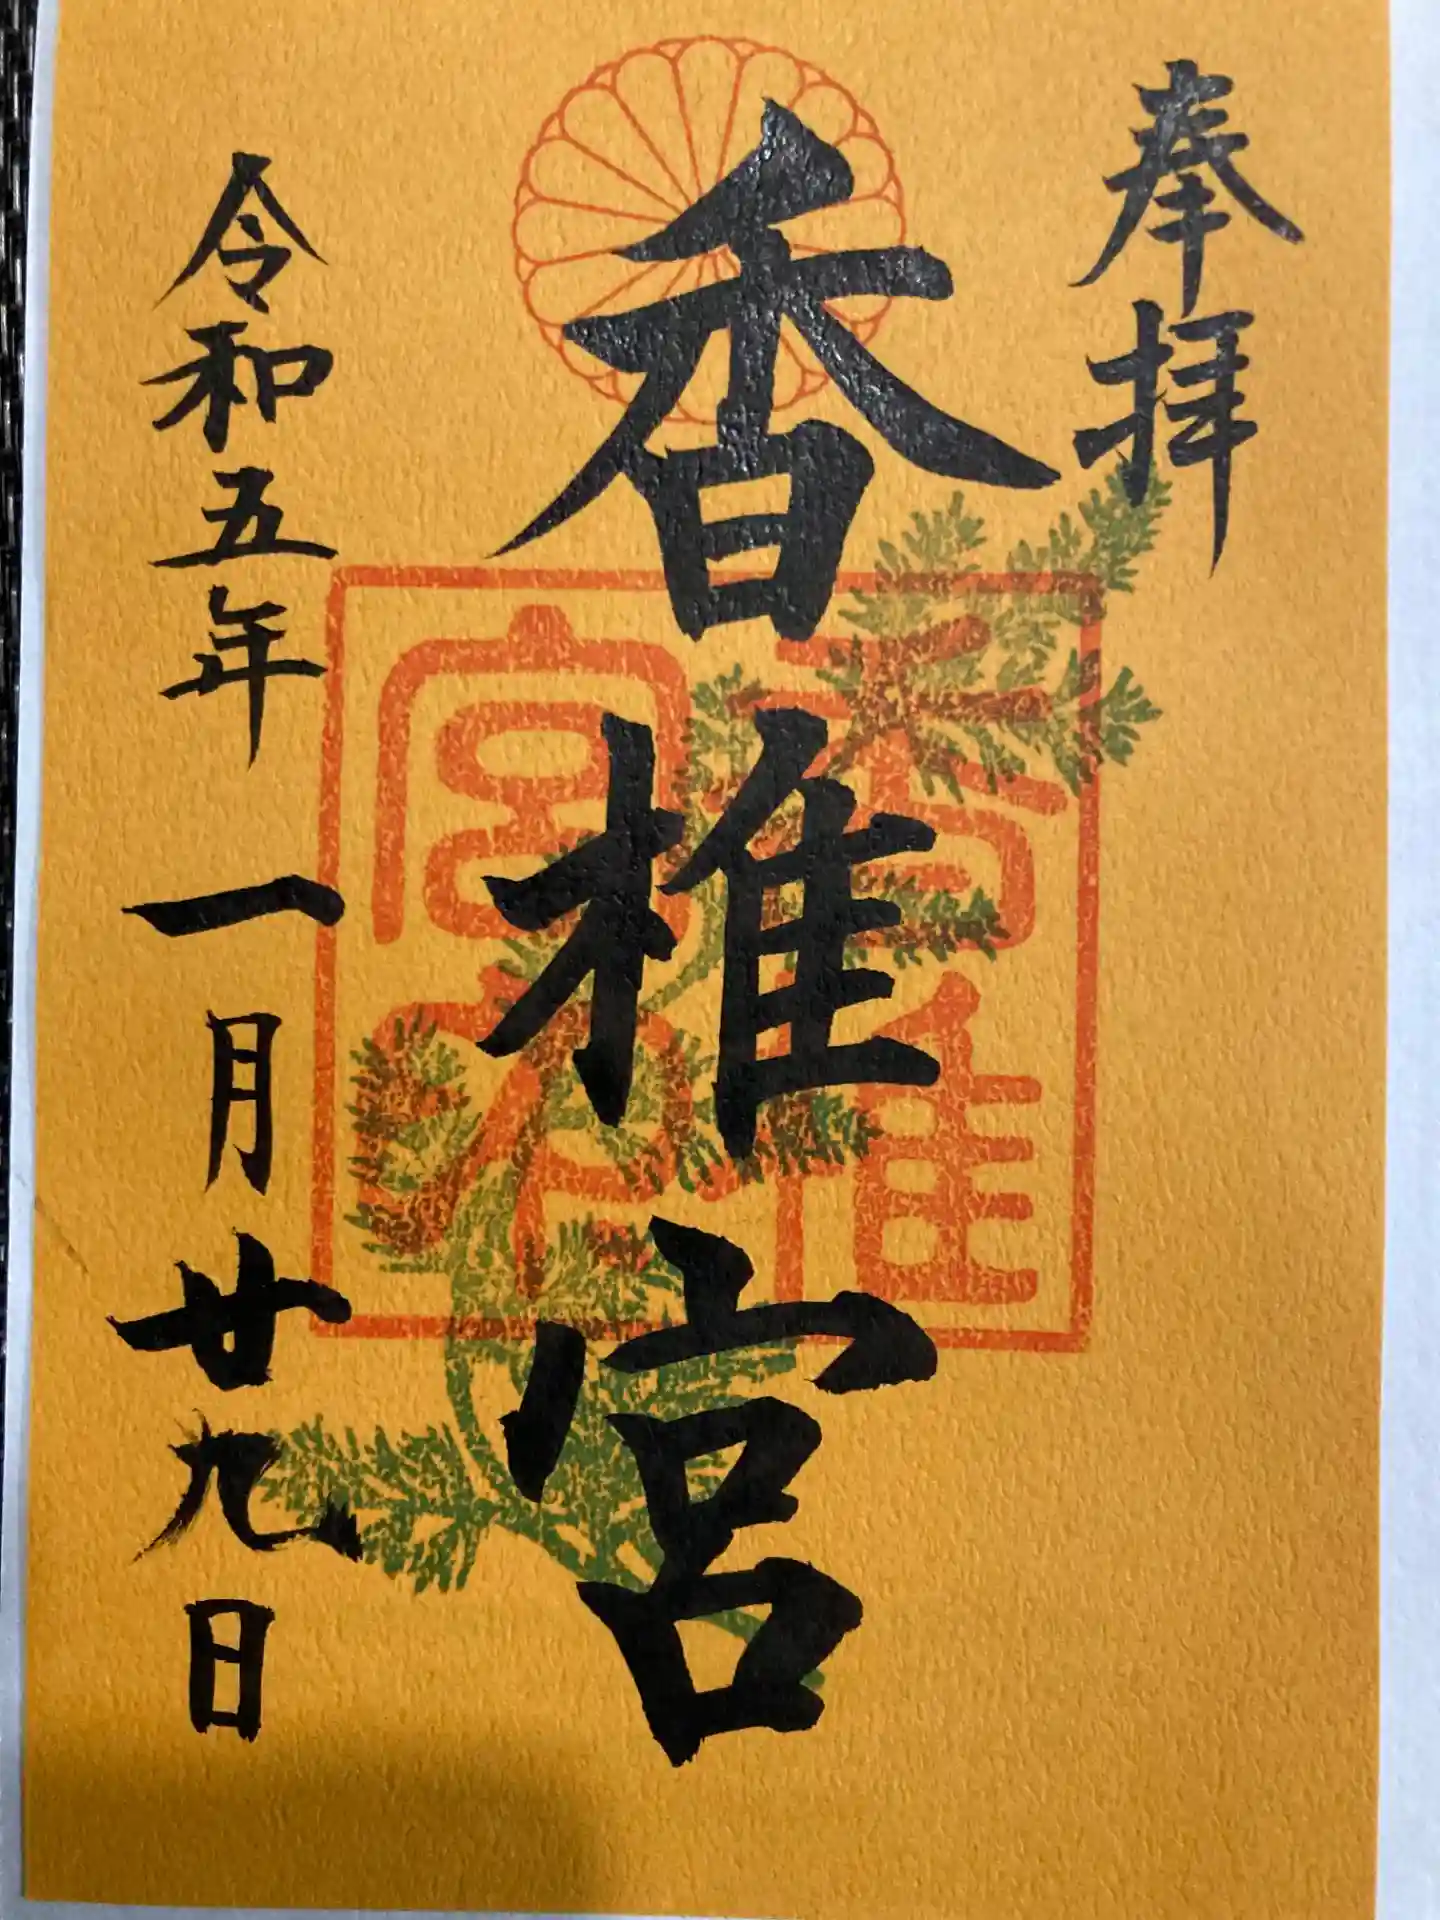 奉拝
香椎宮
香椎宮印
令和五年一月廿九日